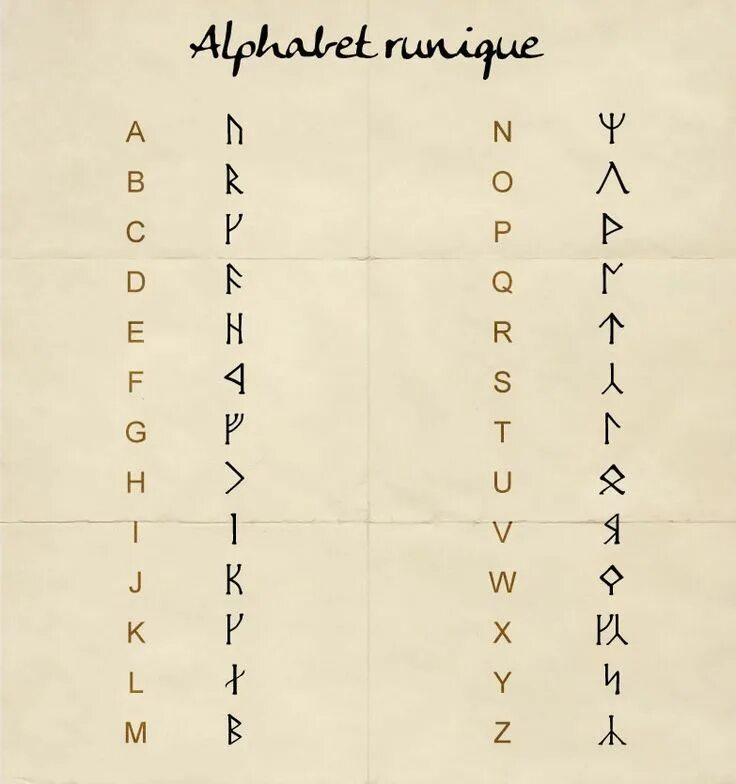 Alphabet runique
A ᚢ N ᛉ
B ᚱ O Λ
C ᚴ P ᚹ
D ᚨ Q
E ᚺ R ᛏ
F S ⅄
G ᚠ T ᛚ
H U ᛟ
I ᛁ V Я
J W
K ᚴ X
L ᛅ Y ᛋ
M ᛒ Z ᛦ